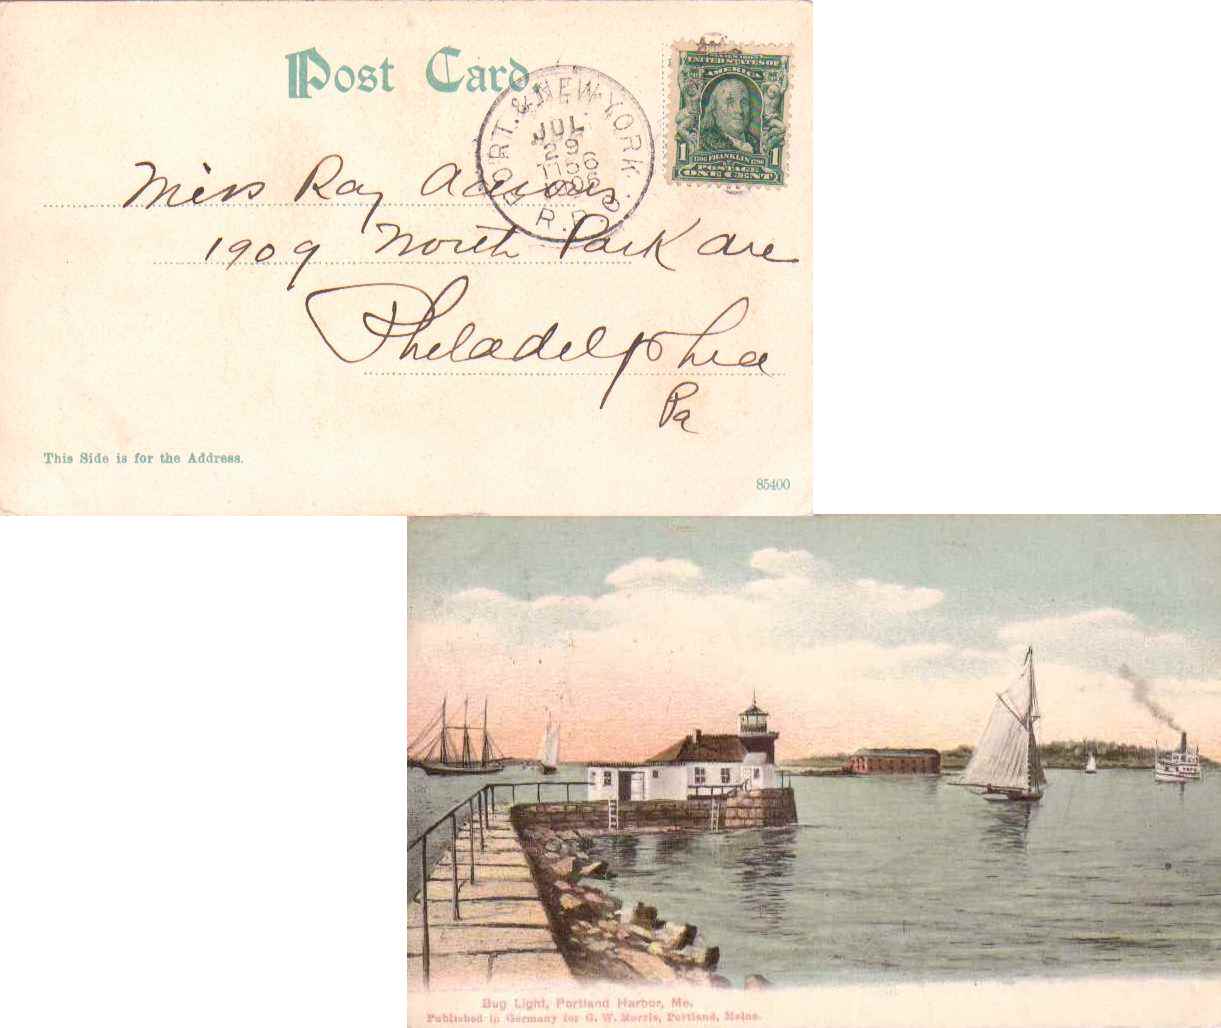 Post Card.
UNITED STATES OF
AMERICA
1706 FRANKLIN 1790
1 1
POSTAGE
ONE CENT
PORT. & NEW YORK
JUL
29
1906
R.P.O.
Miss Ray
1909 North Park Ave
Philadelphia
Pa
This Side is for the Address.
85400
Bug Light, Portland Harbor, Me.
Published in Germany for G. W. Morris, Portland, Maine.